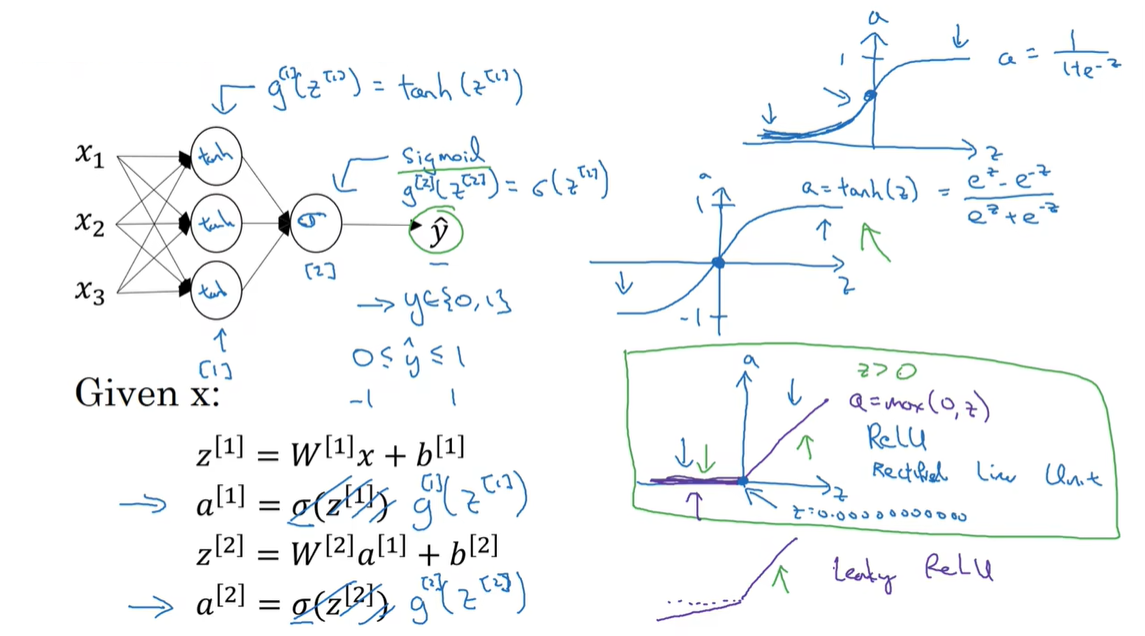 g^[1](z^[1]) = tanh(z^[1])
x₁
tanh
x₂
tanh
x₃
tanh
[1]
Sigmoid
g^[2](z^[2]) = σ(z^[2])
σ
[2]
ŷ
→ y∈{0,1}
0 ≤ ŷ ≤ 1
-1 1
Given x:
z^[1] = W^[1]x + b^[1]
→ a^[1] = σ(z^[1]) g^[1](z^[1])
z^[2] = W^[2]a^[1] + b^[2]
→ a^[2] = σ(z^[2]) g^[2](z^[2])
a
1
a = 1/(1+e^-z)
z
a
1
a = tanh(z) = (e^z - e^-z)/(e^z + e^-z)
z
-1
z>0
a
a=max(0,z)
ReLU
Rectified Linear Unit
z
z=0.00000000000
Leaky ReLU